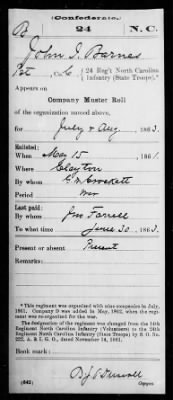 (Confederate.)
B 24 N.C.
John J. Barnes
Pvt, Co. C, 24 Reg't North Carolina
Infantry (State Troops).*
Appears on
Company Muster Roll
of the organization named above,
for July & Aug, 1863.
Enlisted:
When May 15, 1861.
Where Clayton
By whom
Period War
Last paid:
By whom Jno Farrell
To what time June 30, 1863.
Present or absent Present
Remarks:
*This regiment was organized with nine companies in July,
1861. Company D was added in May, 1862, when the regi-
ment was re-organized for the war.
The designation of the regiment was changed from the 14th
Regiment North Carolina Infantry (Volunteers) to the 24th
Regiment North Carolina Infantry (State Troops) by S. O. No.
222, A. & I. G. O., dated November 14, 1861.
Book mark:
(642) Copyist.